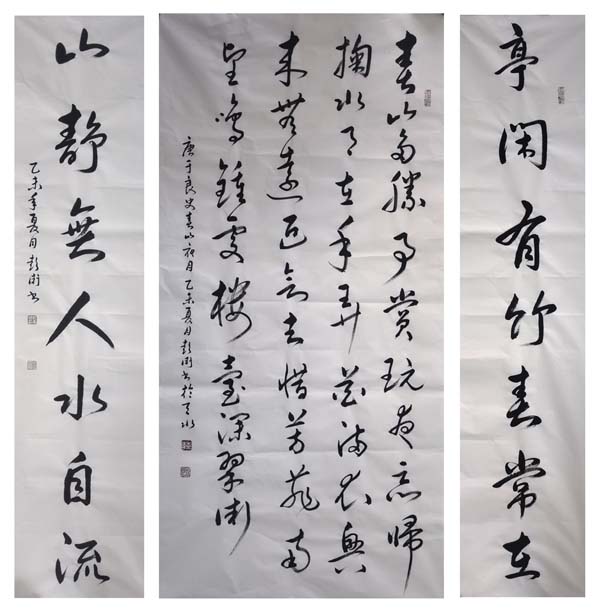 亭閑有竹春常在
春山多勝事賞玩夜忘歸
掬水月在手弄花滿衣興
来無遠近欲去惜芳菲南
望鳴鐘處樓臺深翠微
唐于良史春山夜月 乙未夏月彭衛書於天水
山靜無人水自流
乙未年夏月彭衛書